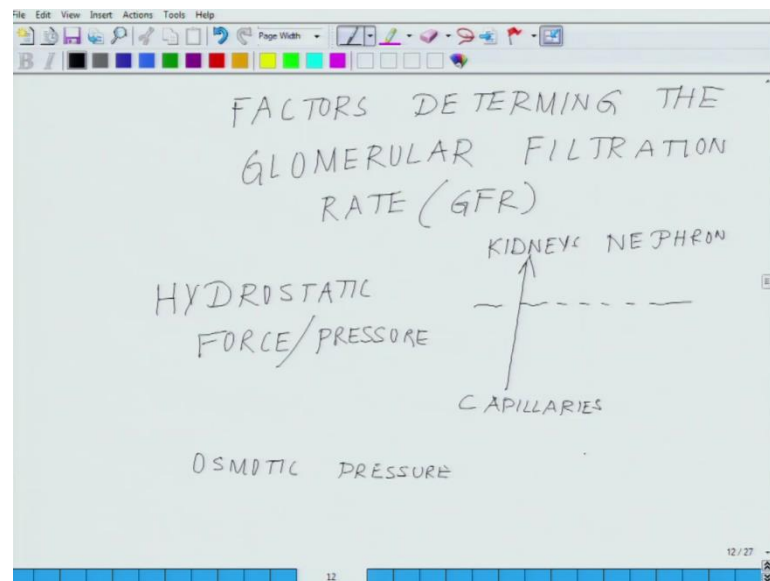 File Edit View Insert Actions Tools Help
Page Width
B I
FACTORS DETERMING THE
GLOMERULAR FILTRATION
RATE (GFR)
KIDNEYS NEPHRON
HYDROSTATIC
FORCE/PRESSURE
CAPILLARIES
OSMOTIC PRESSURE
12/27
12